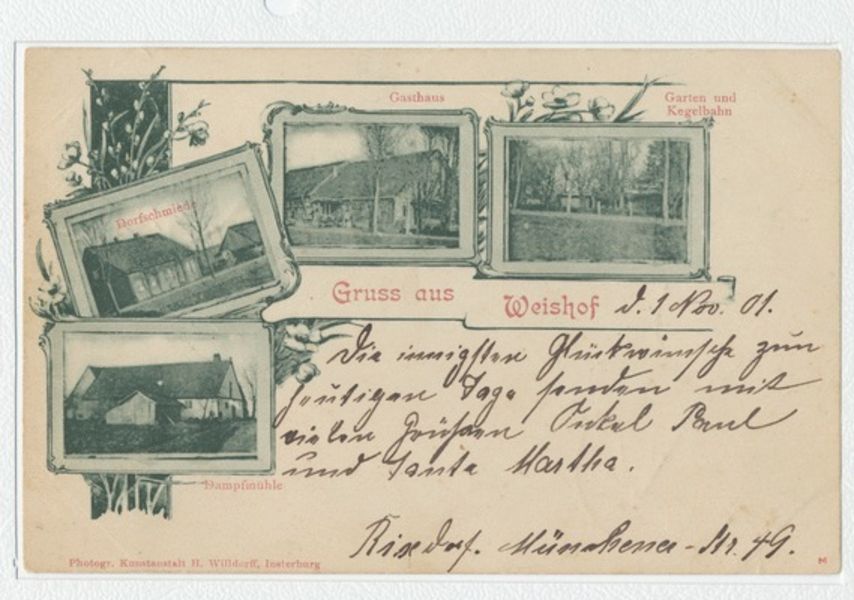 Gasthaus
Garten und
Kegelbahn
Dorfschmiede
Gruss aus Weishof d. 1 Nov. 01.
Die innigsten Glückwünsche zum
heutigen Tage senden mit
vielen Grüßen Onkel Paul
und Tante Martha.
Dampfmühle
Rixdorf. Münchener-Str. 49.
Photogr. Kunstanstalt H. Willdorff, Insterburg